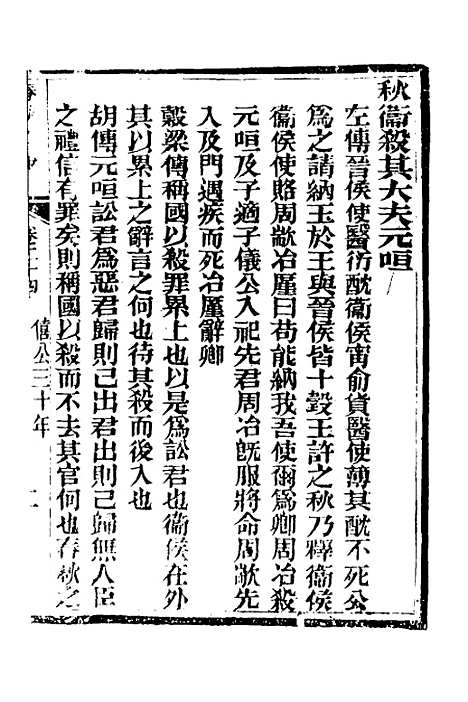 秋衞殺其大夫元咺
左傳晉侯使醫衍酖衞侯甯俞貨醫使薄其酖不死公
爲之請納玉於王與晉侯皆十瑴王許之秋乃釋衞侯
衞侯使賂周歂冶廑曰苟能納我吾使爾爲卿周冶殺
元咺及子適子儀公入祀先君周冶旣服將命周歂先
入及門遇疾而死冶廑辭卿
穀梁傳稱國以殺罪累上也以是爲訟君也衞侯在外
其以累上之辭言之何也待其殺而後入也
胡傳元咺訟君爲惡君歸則己出君出則己歸無人臣
之禮信有罪矣則稱國以殺而不去其官何也春秋之
卷二十四
僖公三十年
二